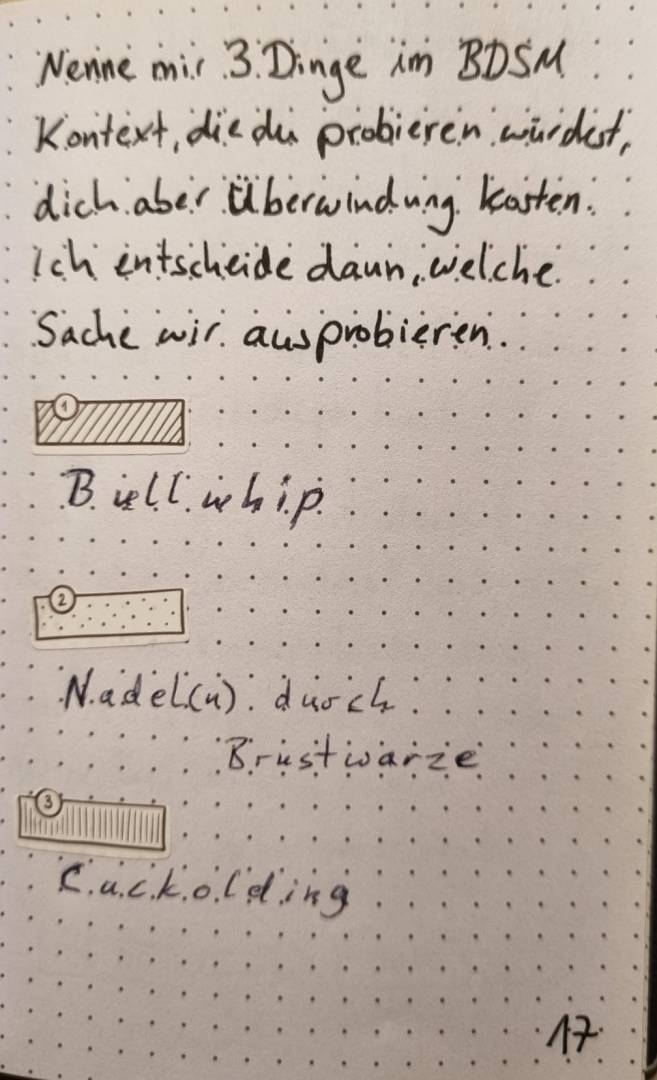 Nenne mir 3 Dinge im BDSM
Kontext, die du probieren würdest,
dich aber Überwindung kosten.
Ich entscheide dann, welche
Sache wir ausprobieren.
1
Bullwhip
2
Nadel(n) durch
Brustwarze
3
Cuckolding
17